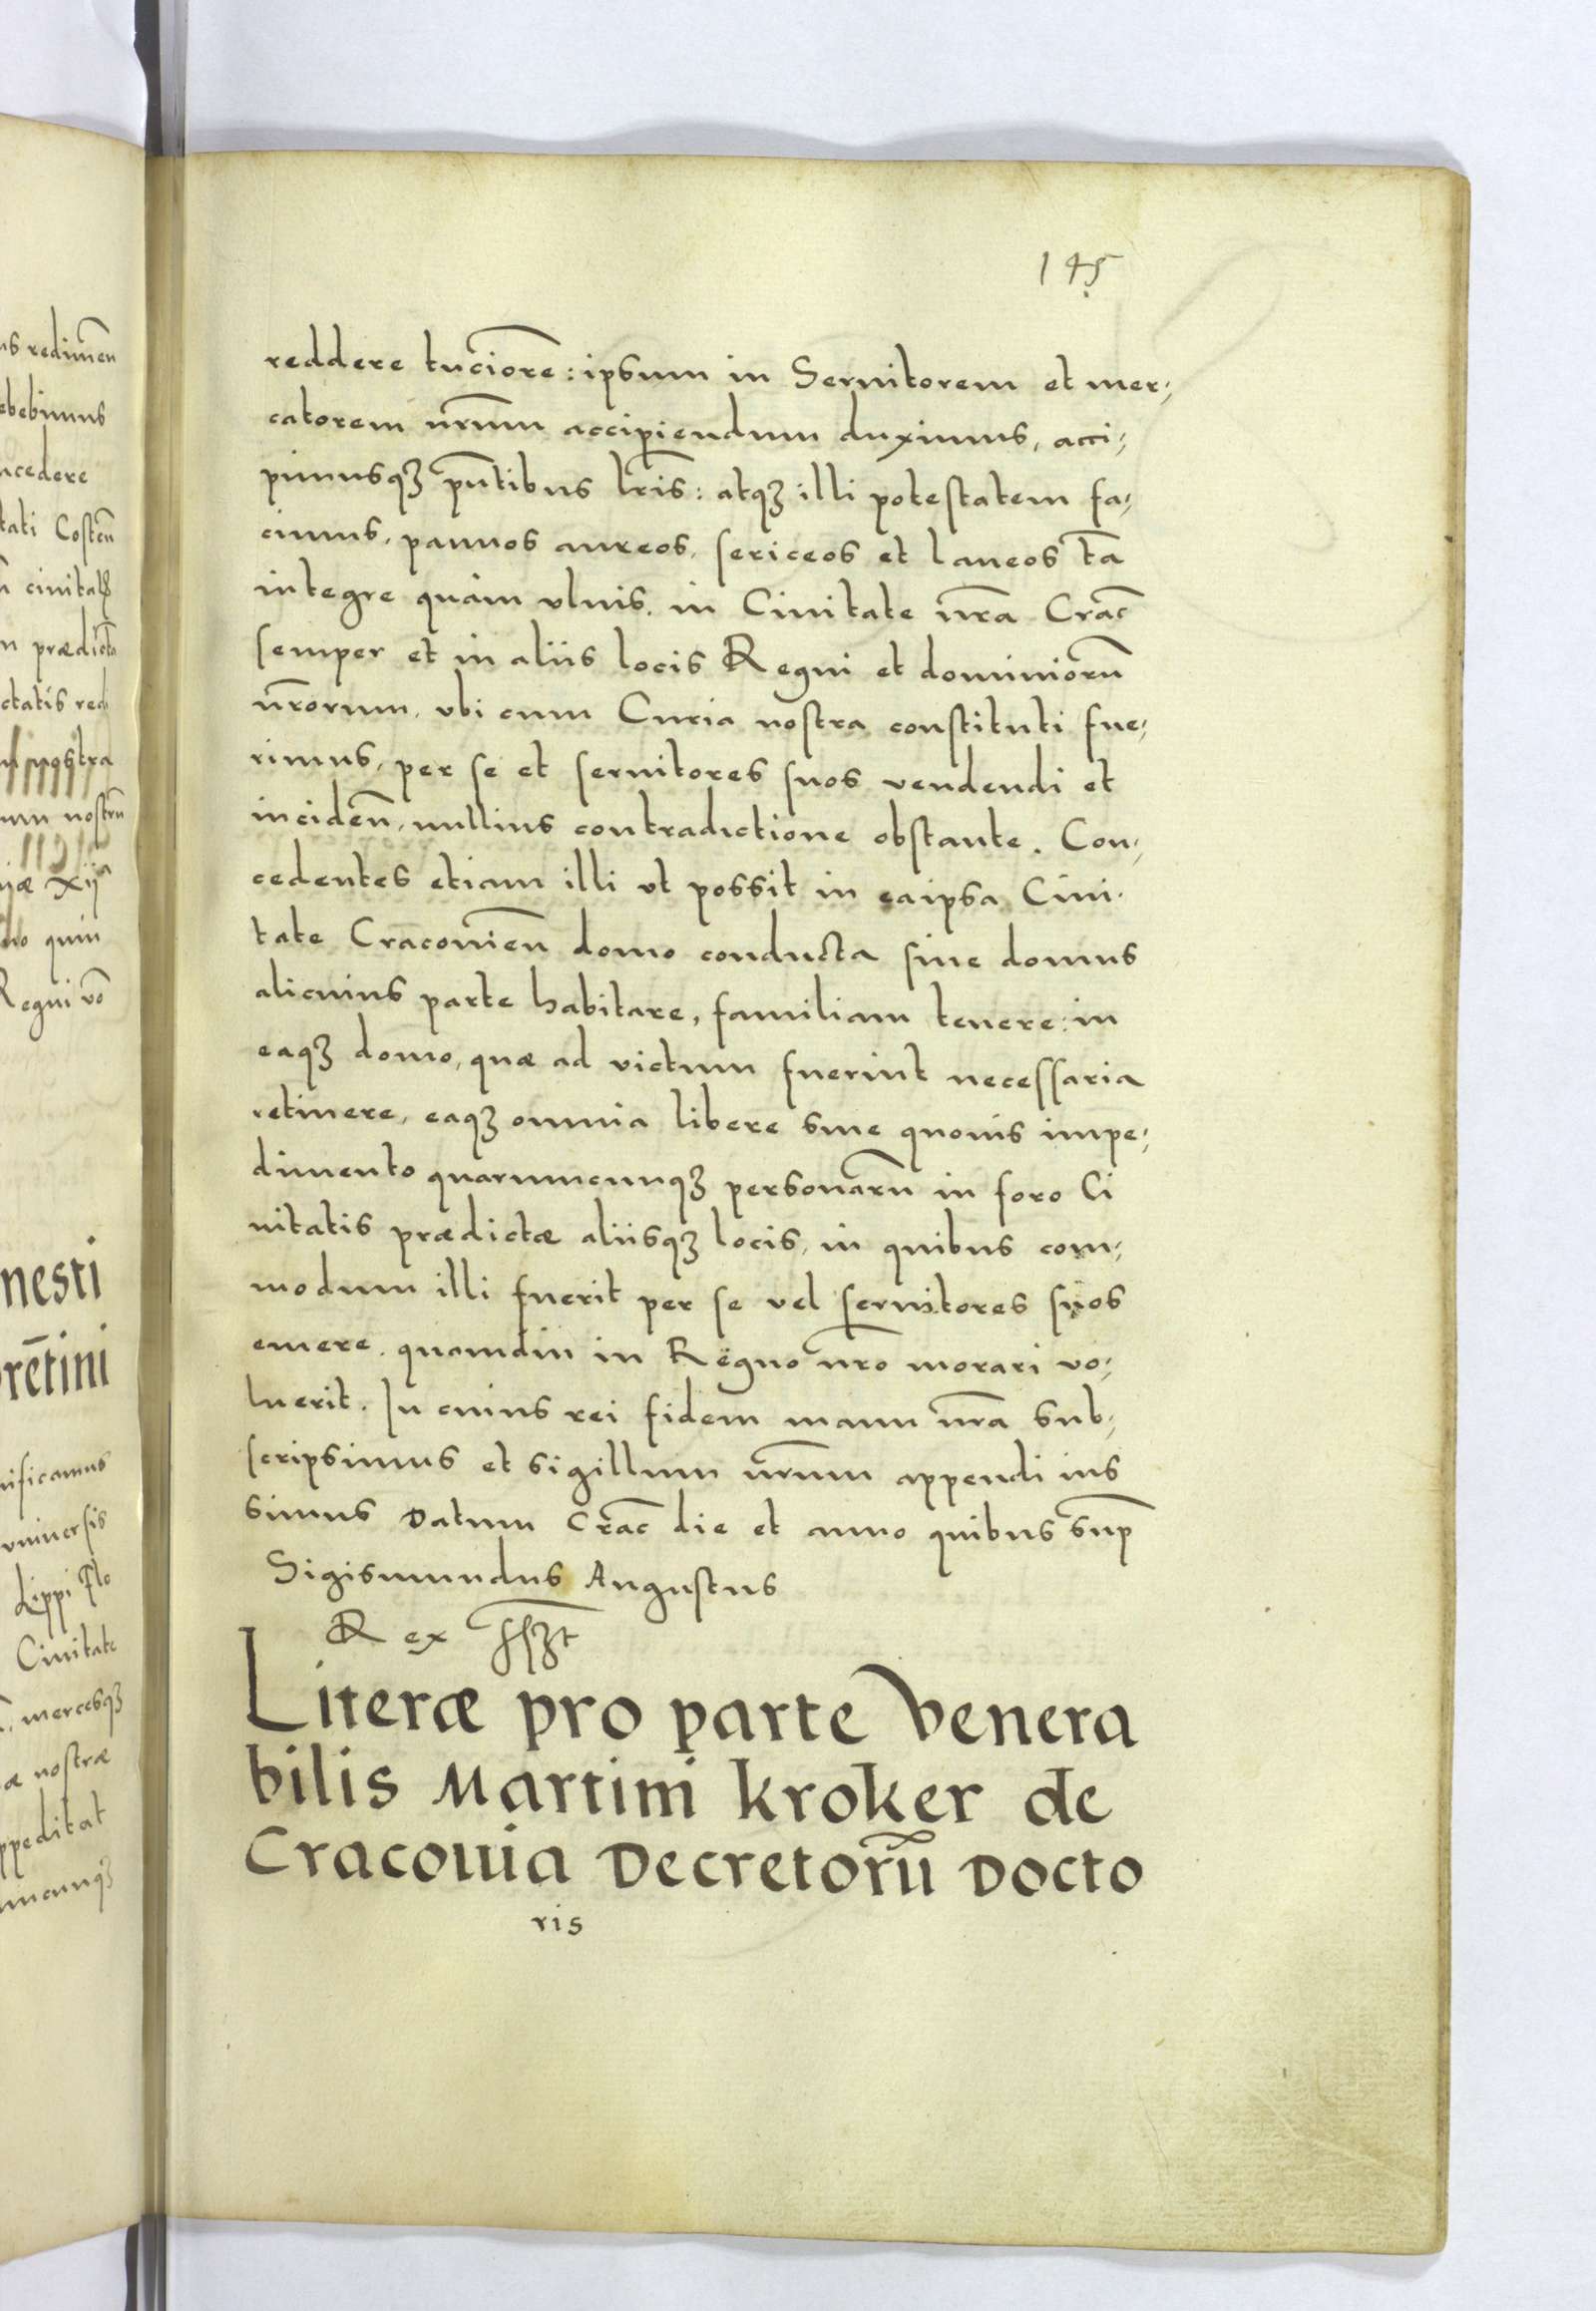 145
reddere tuciorē: ipsum in Seruitorem et mer⸗
catorem nr̄um accipiendum duximus, acci⸗
pimusqꝫ pn̄tibus lr̄is: atqꝫ illi potestatem fa⸗
cimus, pannos aureos, sericeos et laneos tā
integre quàm vlnis, in Ciuitate nr̄a Crac̄
semper et in aliis locis Regni et dominiorū
nr̄orum, vbi cum Curia nostra constituti fue⸗
rimus, per se et seruitores suos vendendi et
inciden̄, nullius contradictione obstante. Con⸗
cedentes etiam illi vt possit in eaipsa Ciui⸗
tate Cracouien̄ domo conducta siue domus
alicuius parte habitare, familiam tenere: in
eaqꝫ domo, quæ ad victum fuerint necessaria
retinere, eaqꝫ omnia libere sine quouis impe⸗
dimento quarumcunqꝫ personarū in foro Ci
uitatis prædictæ aliisqꝫ locis, in quibus com⸗
modum illi fuerit per se vel seruitores suos
emere, quamdiu in Regno nr̄o morari vo⸗
luerit. In cuius rei fidem manu nr̄a sub⸗
scripsimus et sigillum nr̄um appendi ius
simus Datum Crac̄ die et anno quibus sup̄
Sigismundus Augustus
Rex
Literæ pro parte Venera
bilis Martini kroker de
Cracouia Decretorū Docto
ris